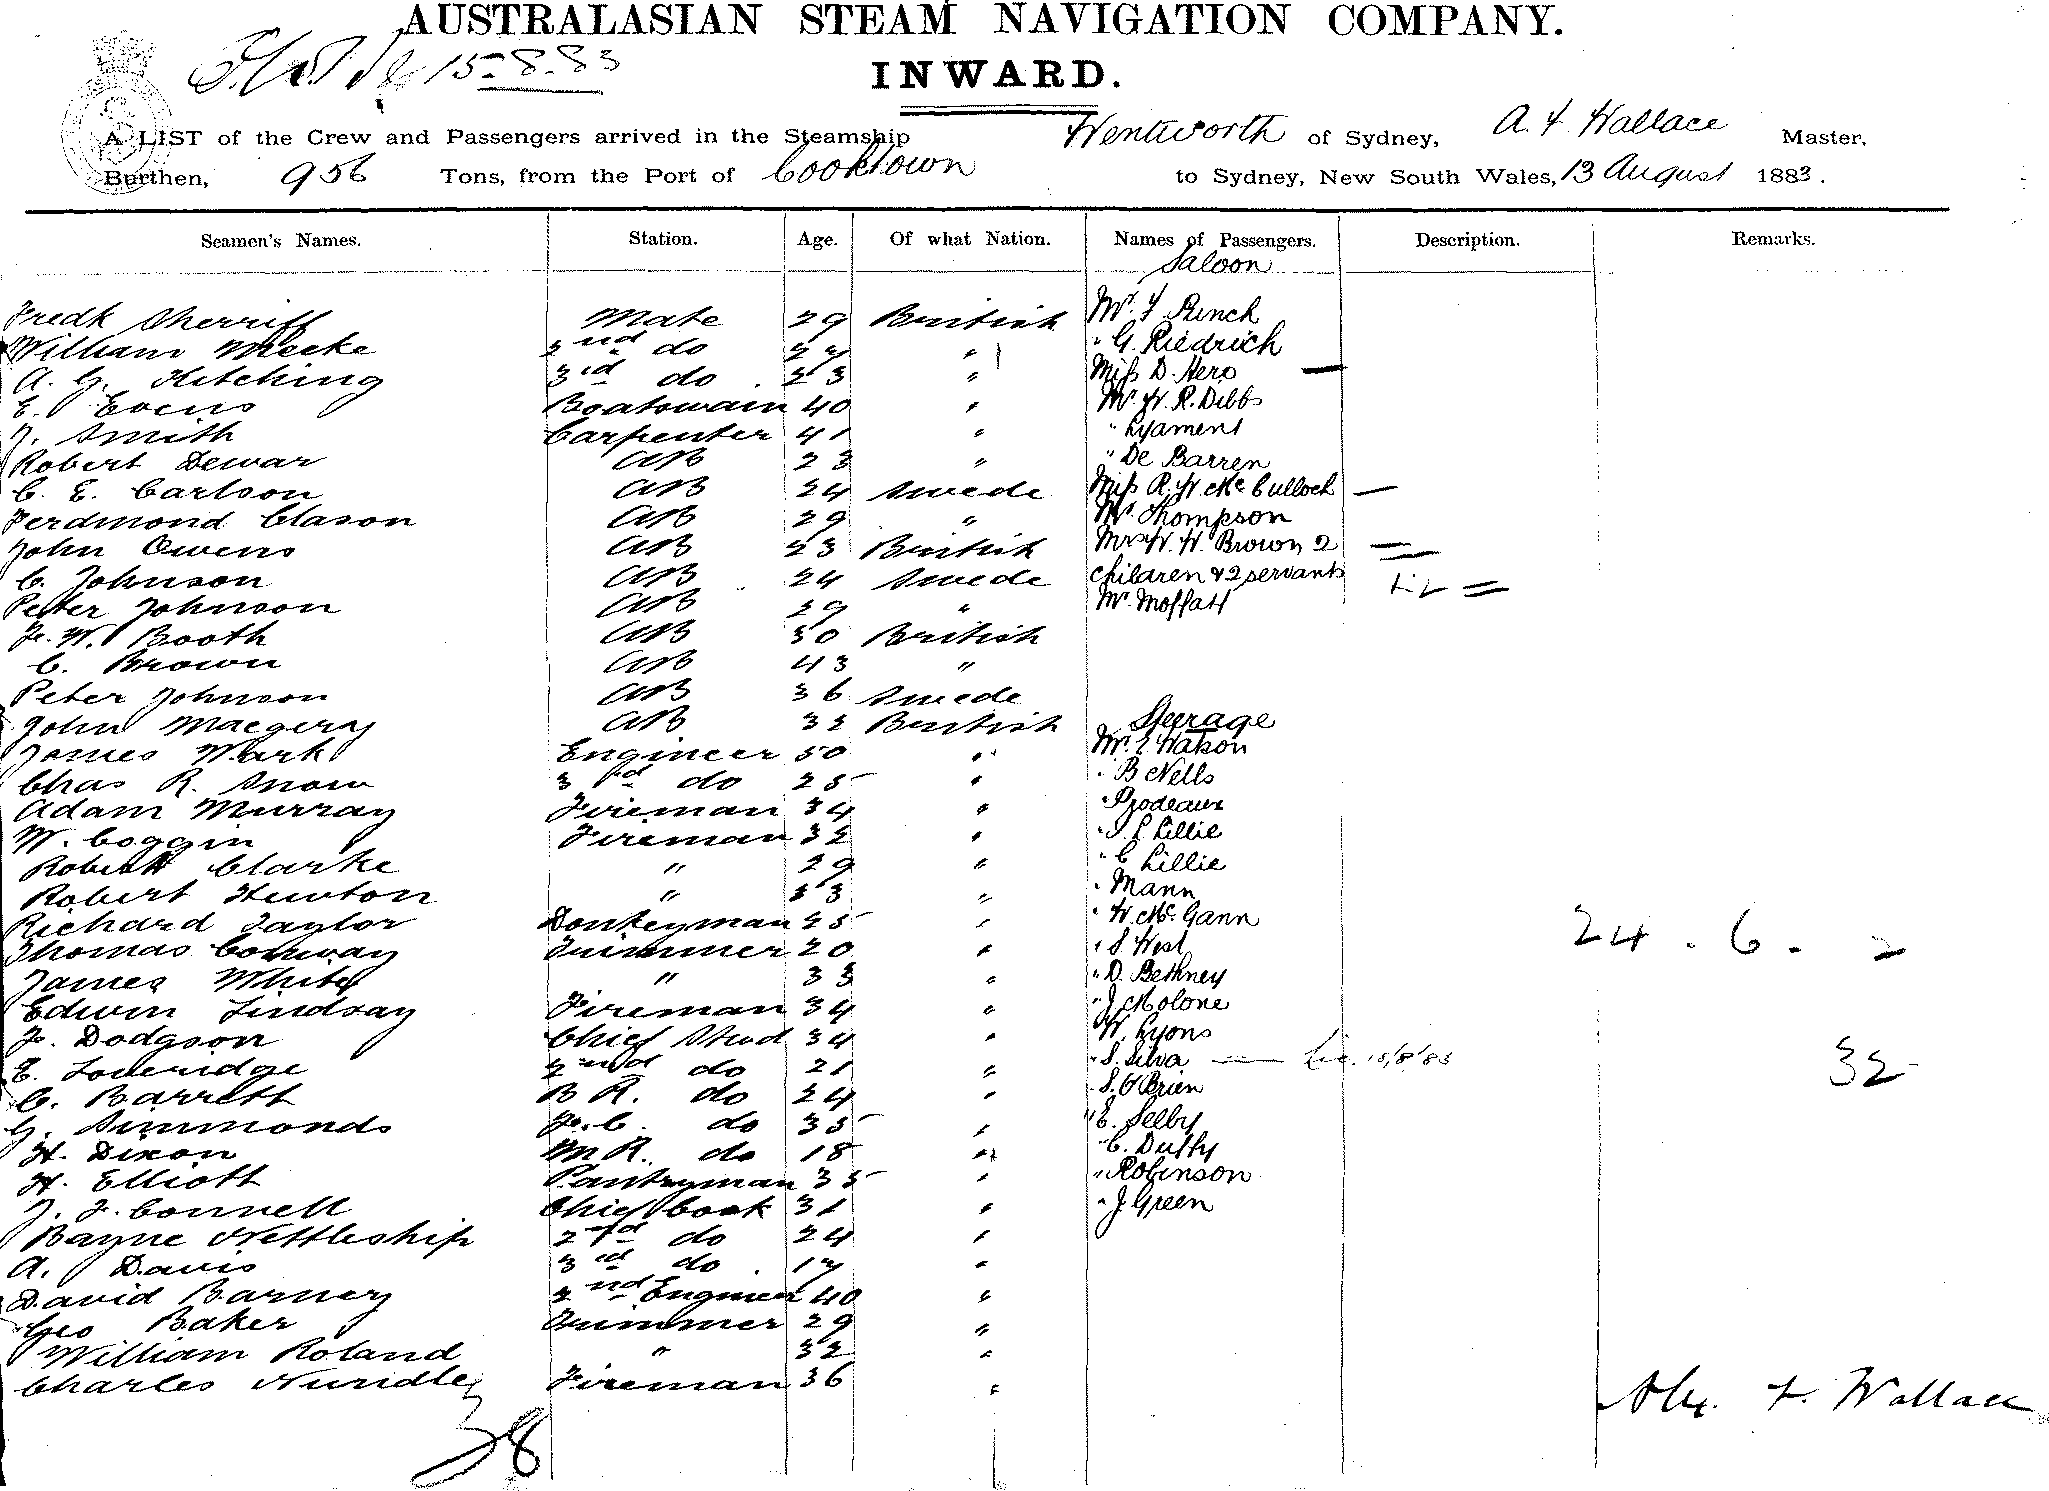 AUSTRALASIAN STEAM NAVIGATION COMPANY.
15-8-83
INWARD.
A LIST of the Crew and Passengers arrived in the Steamship Wentworth of Sydney, A. F Wallace Master,
Burthen, 956 Tons, from the Port of Cooktown to Sydney, New South Wales, 13 August 1883.
Seamen's Names. Station. Age. Of what Nation. Names of Passengers. Description. Remarks.
Saloon
Fredk Sherriff Mate 29 British Mr. F Punch
William Meeke 2nd do 27 " " G. Riedrich
A. G. Hitching 3rd do. 23 " Miss D. Hero —
E. Evens Boatswain 40 " Mr. W. R. Dibbs
J. Smith Carpenter 41 " " Lyament
Robert Dewar AB 23 " " De Barren
C. E. Carlson AB 24 Swede Miss R. W McCulloch —
Ferdmond Clason AB 29 " Mr Thompson
John Owens AB 23 British Mrs W. W. Brown 2 —
C. Johnson AB 24 Swede children & 2 servants
Peter Johnson AB 29 " Mr. Moffatt
W. Booth AB 30 British
C. Brown AB 43 "
Peter Johnson AB 36 Swede
John Maegery AB 32 British Steerage
James Wark Engineer 50 " Mr. E Watson
Chas R. Snow 3rd do 25 " " B Nells
Adam Murray Fireman 34 " " Prodeaux
W. Coggin Fireman 32 " " Lillie
Robert Clarke " 29 " " C Lillie
Robert Newton " 33 " " Mann
Richard Taylor Donkeyman 25 " " W. McGann
Thomas Conway Trimmer 20 " " S. West 24 . 6 . 2
James White " 33 " " D. Bethney
Edwin Lindsay Fireman 34 " " J Molone
F. Dodgson Chief Stwd 34 " " W. Lyons
E. Loveridge 2nd do 21 " " S. Silva — 15/8/83 32
C. Barrett B R. do 24 " " S. O'Brien
G. Simmonds F. C. do 35 " " E. Selby
H. Dixon M R. do 18 " " C. Duffy
H. Elliott Pantryman 35 " " Robinson
J. F. Connell Chief Cook 31 " " J Green
Bayne Nettleship 2nd do 24 "
A. Davis 3rd do. 17 "
David Barney 2nd Engineer 40 "
Geo Baker Trimmer 29 "
William Roland " 32 "
Charles Nuridley Fireman 36 "
Alex. F. Wallace
38